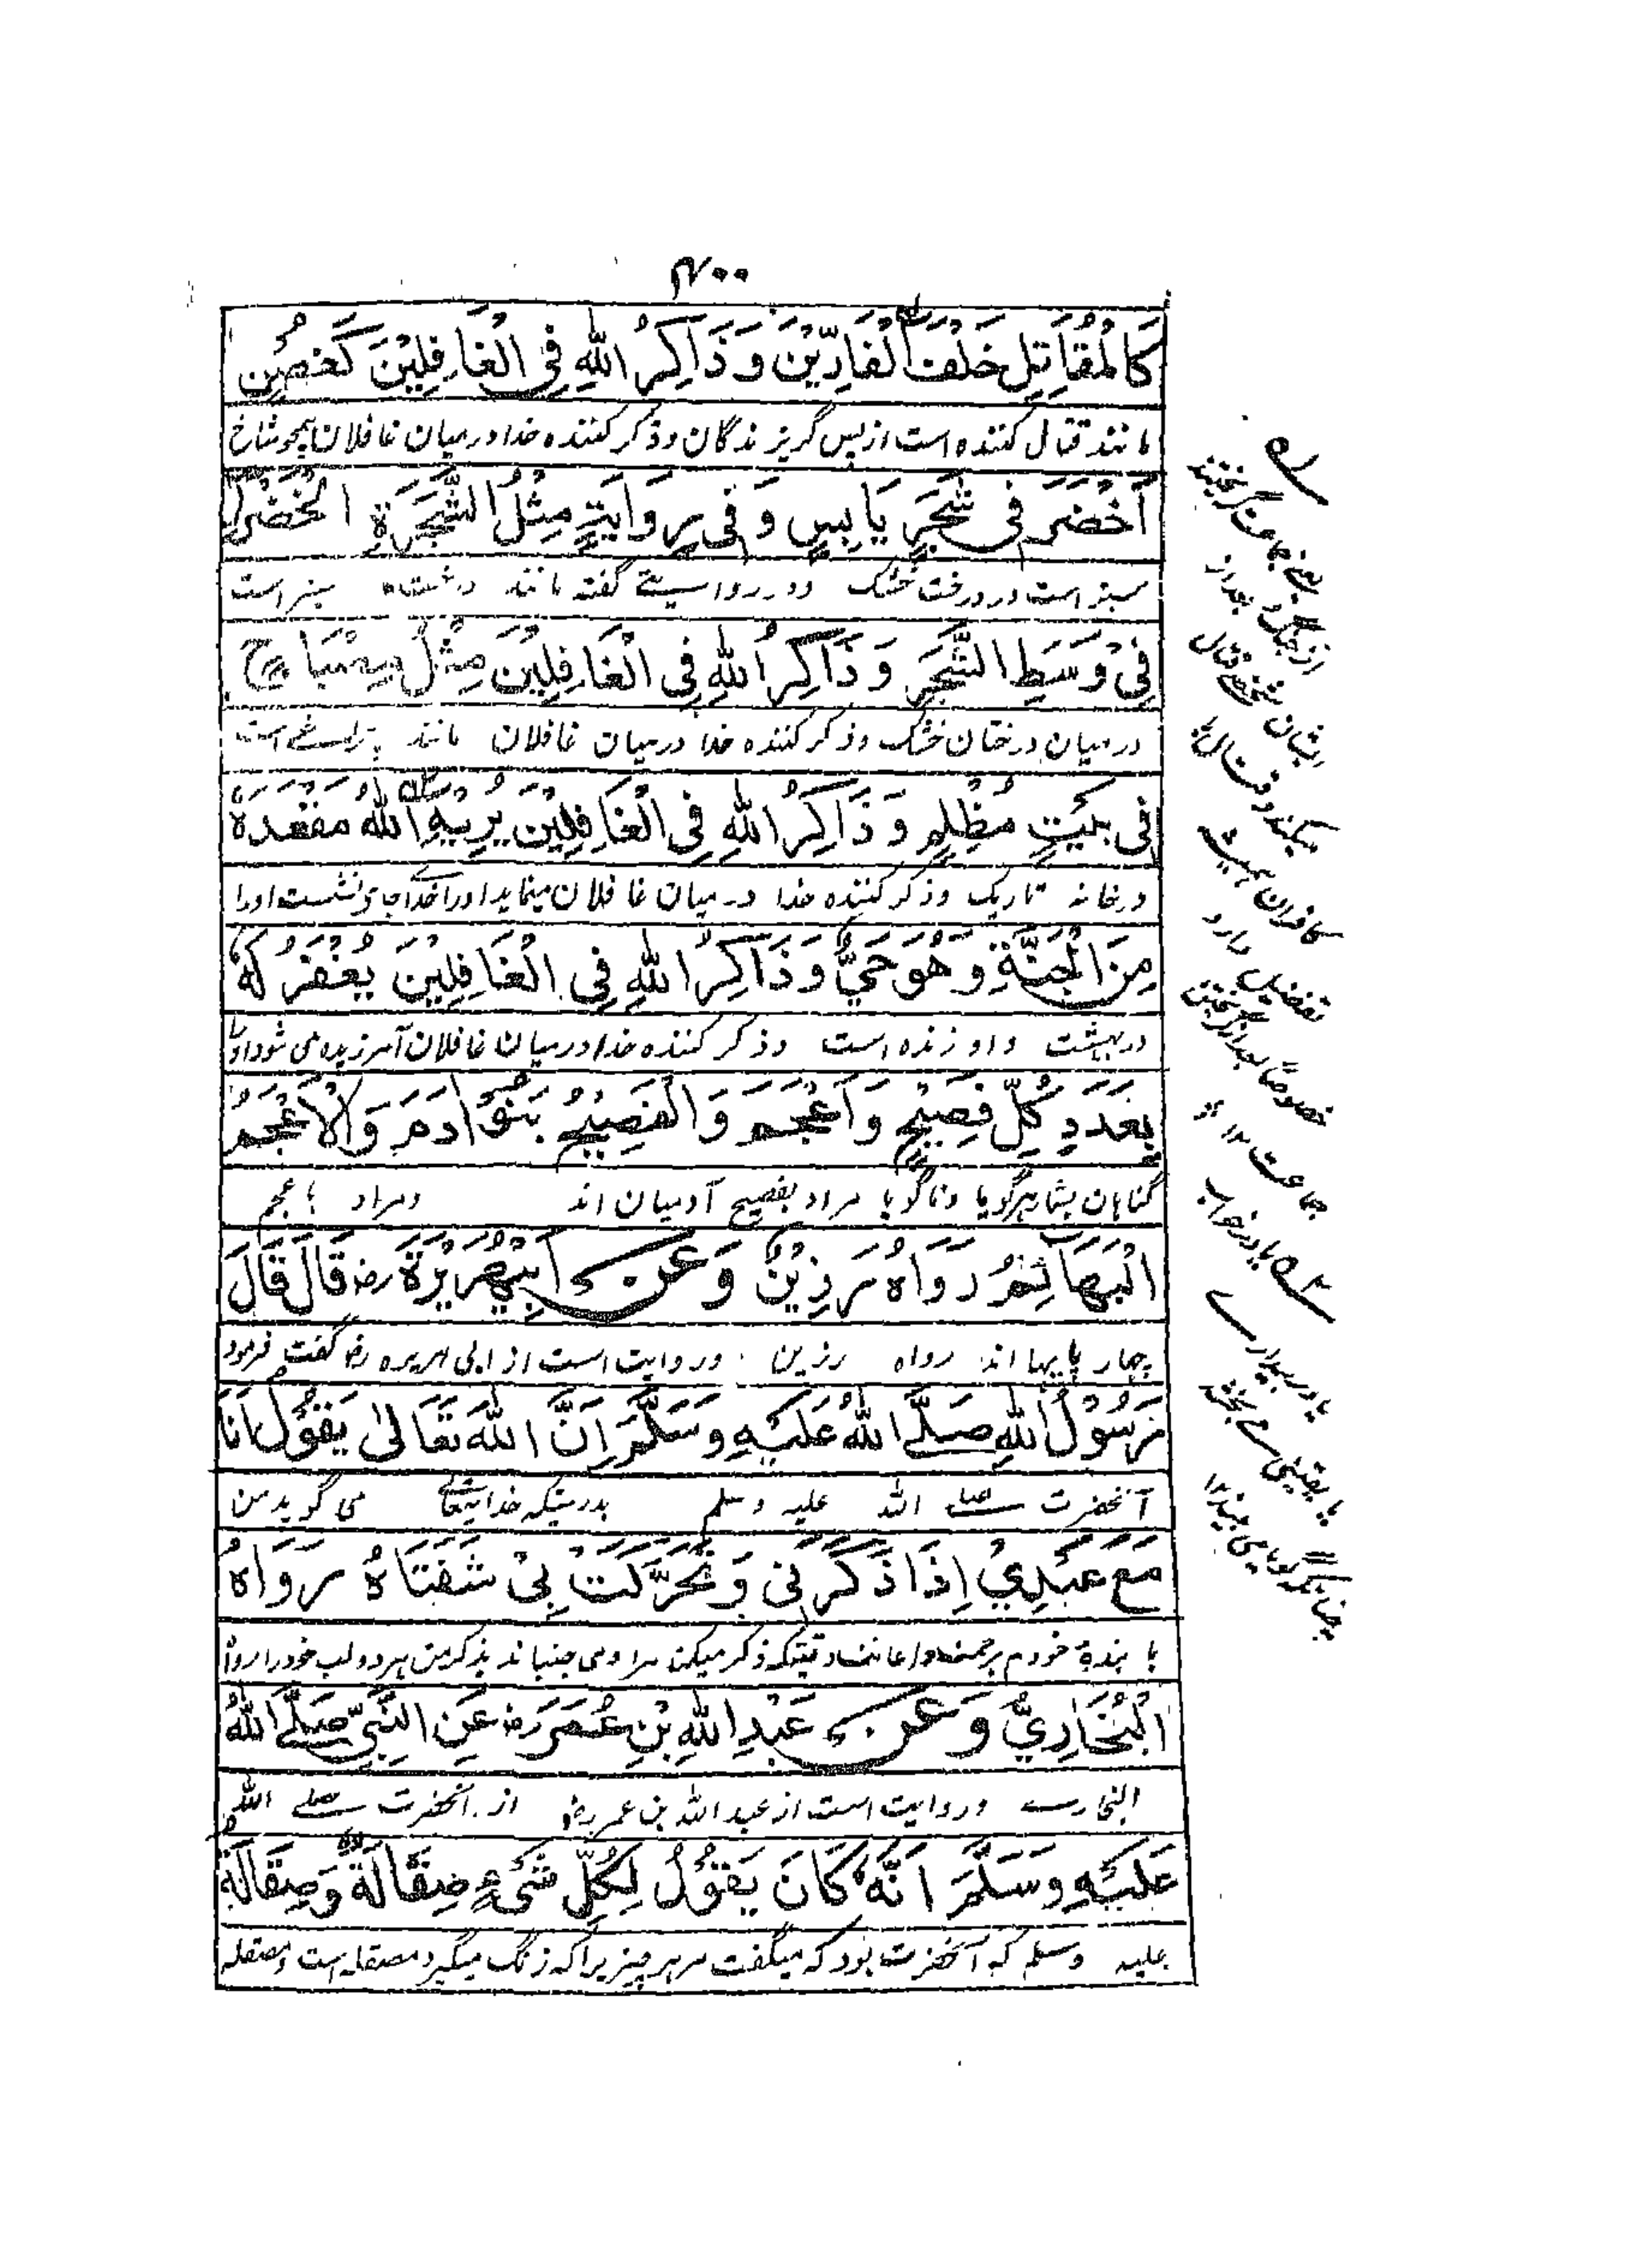 ۴۰۰
كَالْمُقَاتِلِ خَلْفَ الْفَارِّيْنَ وَذَاكِرُ اللهِ فِي الْغَافِلِيْنَ كَغُصْنٍ
مانند قتال کننده است از پس گریزندگان و ذکر کننده خدا در میان غافلان همچو شاخ
اَخْضَرَ فِي شَجَرٍ يَابِسٍ وَفِي رِوَايَةٍ مِثْلُ الشَّجَرَةِ الْخَضْرَاءِ
سبز است در درخت خشک و در روایتے گفته مانند درخت سبز است
فِيْ وَسَطِ الشَّجَرِ وَذَاكِرُ اللهِ فِي الْغَافِلِيْنَ مِثْلُ مِصْبَاحٍ
در میان درختان خشک و ذکر کننده خدا در میان غافلان مانند چراغے است
فِي بَيْتٍ مُظْلِمٍ وَذَاكِرُ اللهِ فِي الْغَافِلِيْنَ يُرِيْهِ اللهُ مَقْعَدَهٗ
در خانه تاریک و ذکر کننده خدا در میان غافلان مینماید او را خدا جای نشست او را
مِنَ الْجَنَّةِ وَهُوَ حَيٌّ وَذَاكِرُ اللهِ فِي الْغَافِلِيْنَ يُغْفَرُ لَهٗ
در بهشت و او زنده است و ذکر کننده خدا در میان غافلان آمرزیده می شود او را
بِعَدَدِ كُلِّ فَصِيْحٍ وَاَعْجَمَ وَالْفَصِيْحُ بَنُوْ اٰدَمَ وَالْاَعْجَمُ
گناهان بشمار هر گویا و ناگویا مراد بفصیح آدمیان اند و مراد باعجم
الْبَهَائِمُ رَوَاهُ رَزِيْنٌ وَعَنْ اَبِيْ هُرَيْرَةَ رض قَالَ قَالَ
چهار پایها اند رواه رزین و روایت است از ابی هریره رض گفت فرمود
رَسُوْلُ اللهِ صَلَّى اللهُ عَلَيْهِ وَسَلَّمَ اِنَّ اللهَ تَعَالٰى يَقُوْلُ اَنَا
آنحضرت صلے الله علیه وسلم بدرستیکه خدایتعالے می گوید من
مَعَ عَبْدِيْ اِذَا ذَكَرَنِي وَتَحَرَّكَتْ بِيْ شَفَتَاهُ رَوَاهُ
با بندهٔ خودم برحمت و اعانت وقتیکه ذکر میکند مرا و می جنباند بذکر من هر دو لب خود را رواه
الْبُخَارِيُّ وَعَنْ عَبْدِ اللهِ بْنِ عُمَرَ رض عَنِ النَّبِيِّ صَلَّى اللهُ
البخارے و روایت است از عبد الله بن عمر رض از آنحضرت صلے الله
عَلَيْهِ وَسَلَّمَ اَنَّهٗ كَانَ يَقُوْلُ لِكُلِّ شَيْءٍ صِقَالَةٌ وَصِقَالَةُ
علیه وسلم که آنحضرت بود که میگفت مر هر چیز یرا که زنگ میگیرد مصقله است و مصقله
یعنی جماعت گریختند
از جنگ و بعد از
ایشان شخصے قتال
میکند و قتال
کافران
تفضیل دارد
خصوصاً بعد از گریختن
جماعت ۱۲
یا در خواب
یا در بیدارے